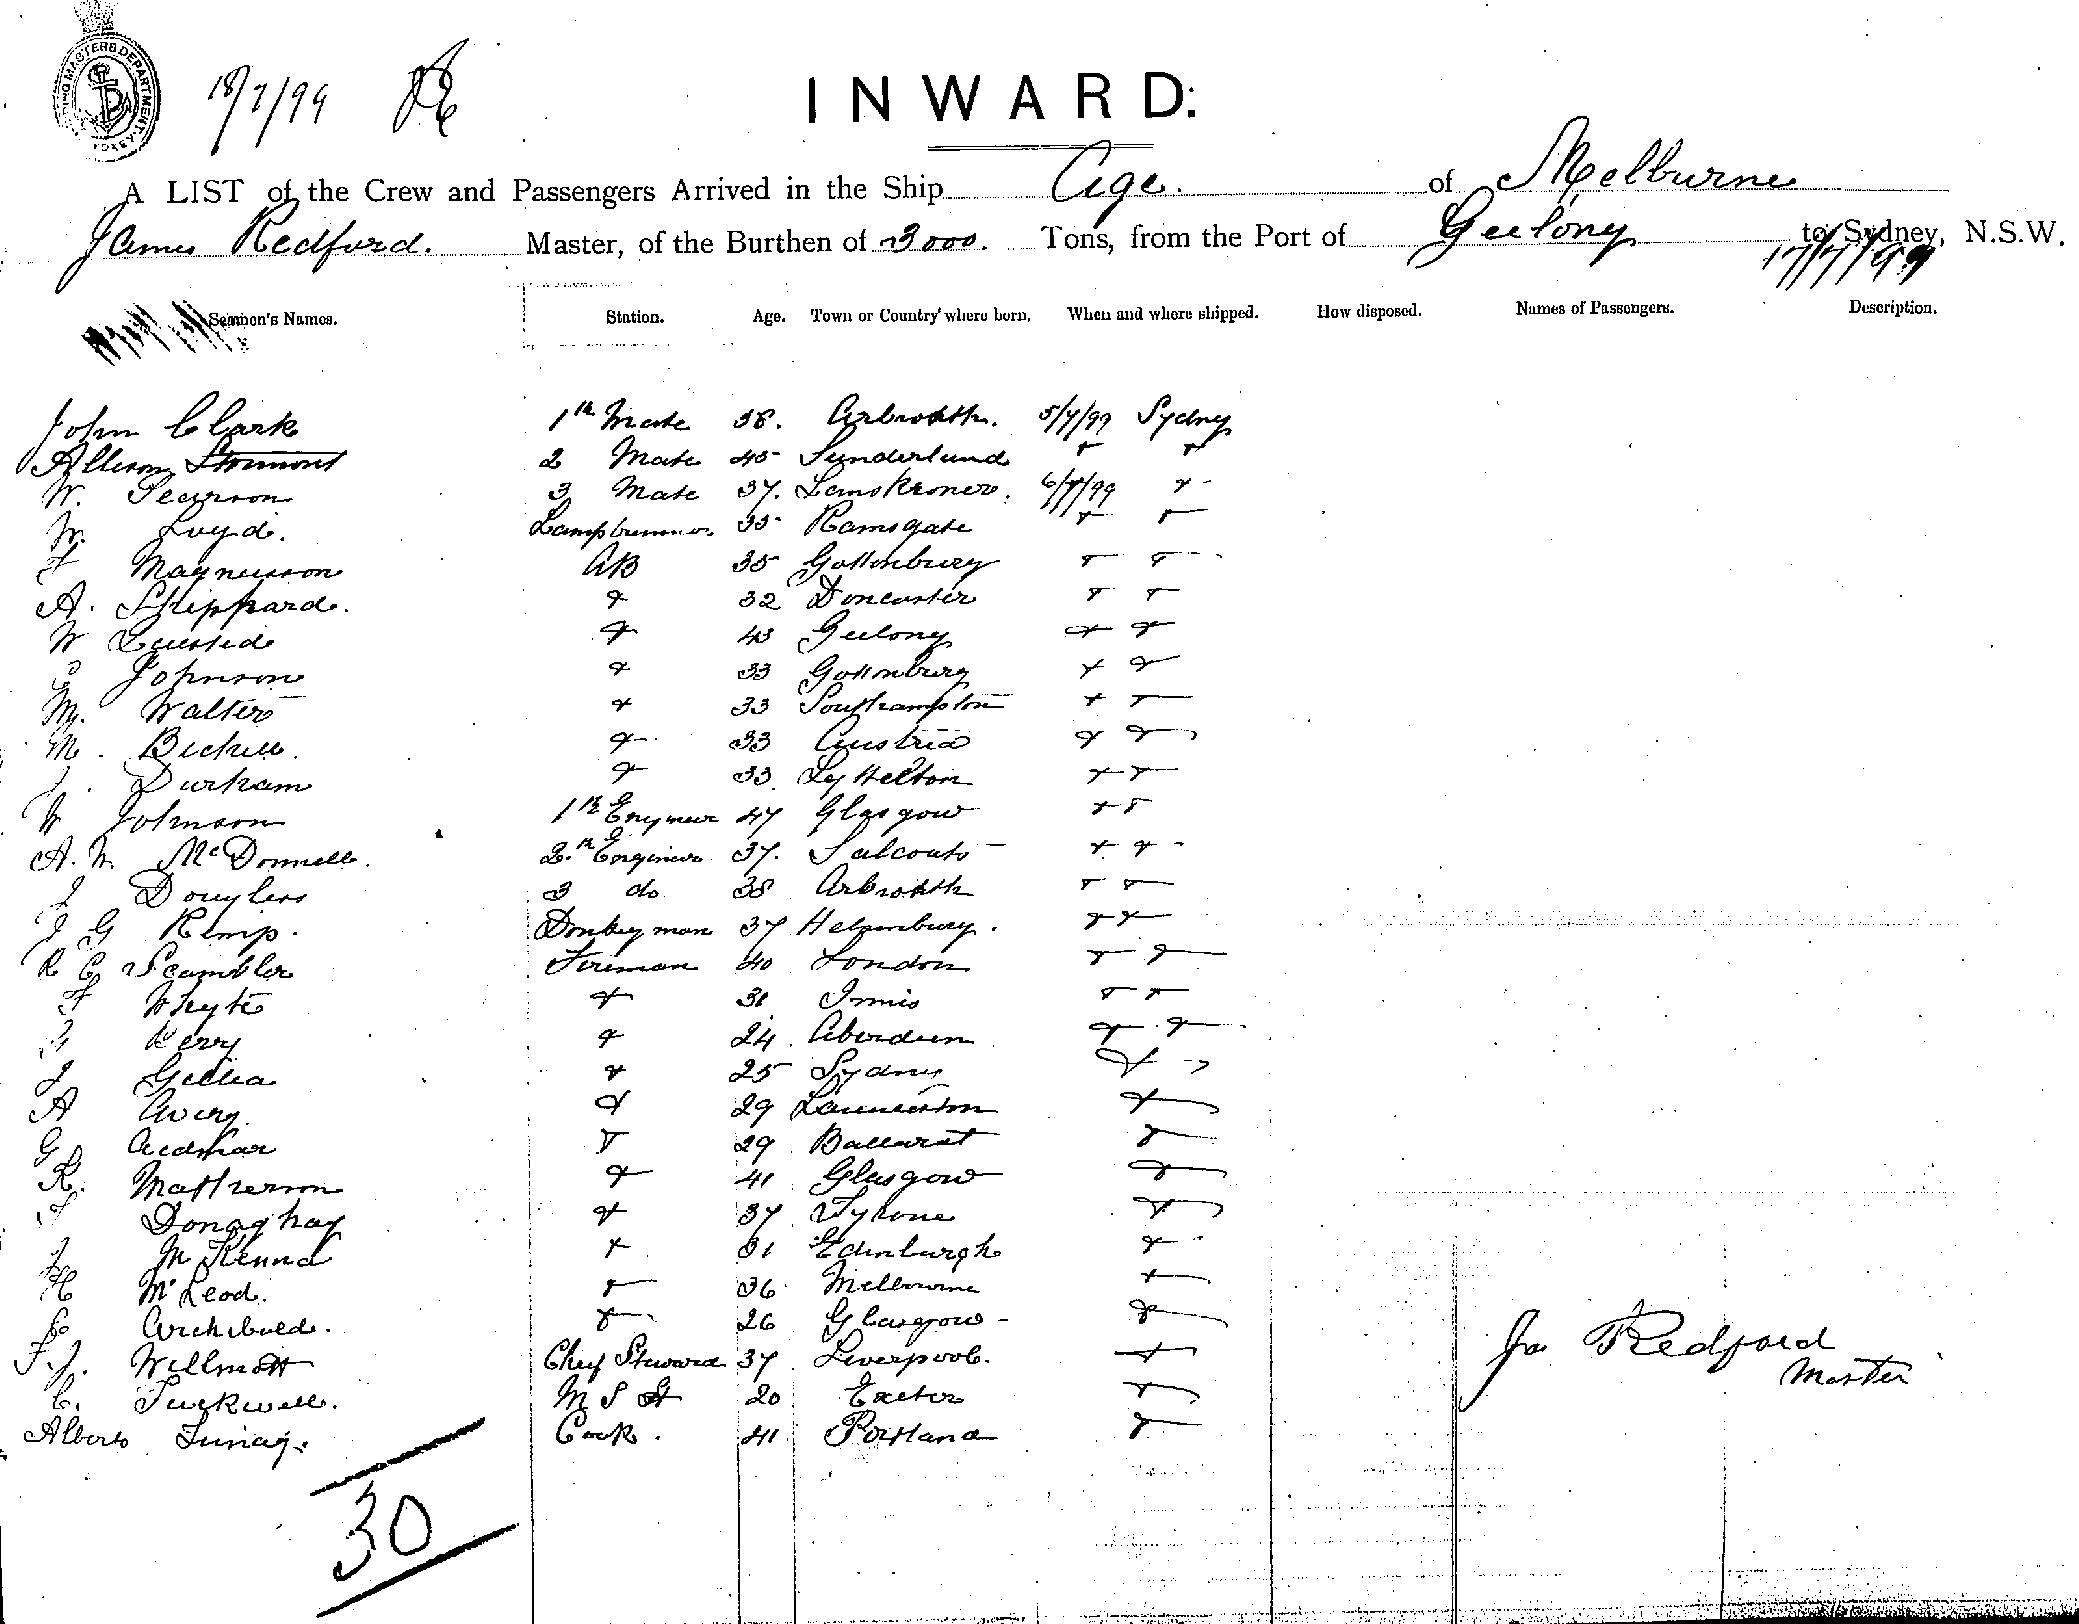 SHIPPING MASTERS DEPARTMENT SYDNEY
18/7/99
INWARD:
A LIST of the Crew and Passengers Arrived in the Ship Age. of Melburne
James Redford. Master, of the Burthen of 3000. Tons, from the Port of Geelong to Sydney, N.S.W.
17/7/99
Seamen's Names. Station. Age. Town or Country where born. When and where shipped. How disposed. Names of Passengers. Description.
John Clark 1th Mate 38. Arbroath. 5/7/99 Sydney
Allison 2 Mate 45 Sunderland
W. Pearson 3 Mate 37. 6/7/99
W. Loyd. Lamptrimmer 35 Ramsgate
Magnusson AB 35 Gottenburg
A. Shippard. 32 Doncaster
W 43 Geelong
Johnson 33 Gottenburg
M. Walters 33 Southampton
M. 33 Austria
J. Durham 33 Lyttelton
W Johnson 1th Engineer 47 Glasgow
A. W. McDonnell. 2.n Engineer 37. Salcoats
J Douglass 3 do 38 Arbroath
J G Kemp. Donkeyman 37
R C Scambler Fireman 40 London
F Whyte 31
Kerry 24 Aberdeen
J 25 Sydney
A Avery. 29 Launceston
G 29 Ballarat
R. Matherson 41 Glasgow
Donaghay 37 Tyrone
J McKenna 31 Edinburgh
H McLeod. 36 Melbourne
Archibald. 26 Glasgow
F. J. Willmott Chief Steward 37 Liverpool.
C. Tuckwell. M S St 20 Exeter
Albert Cook. 41 Portland
Jas Redford
Master
30